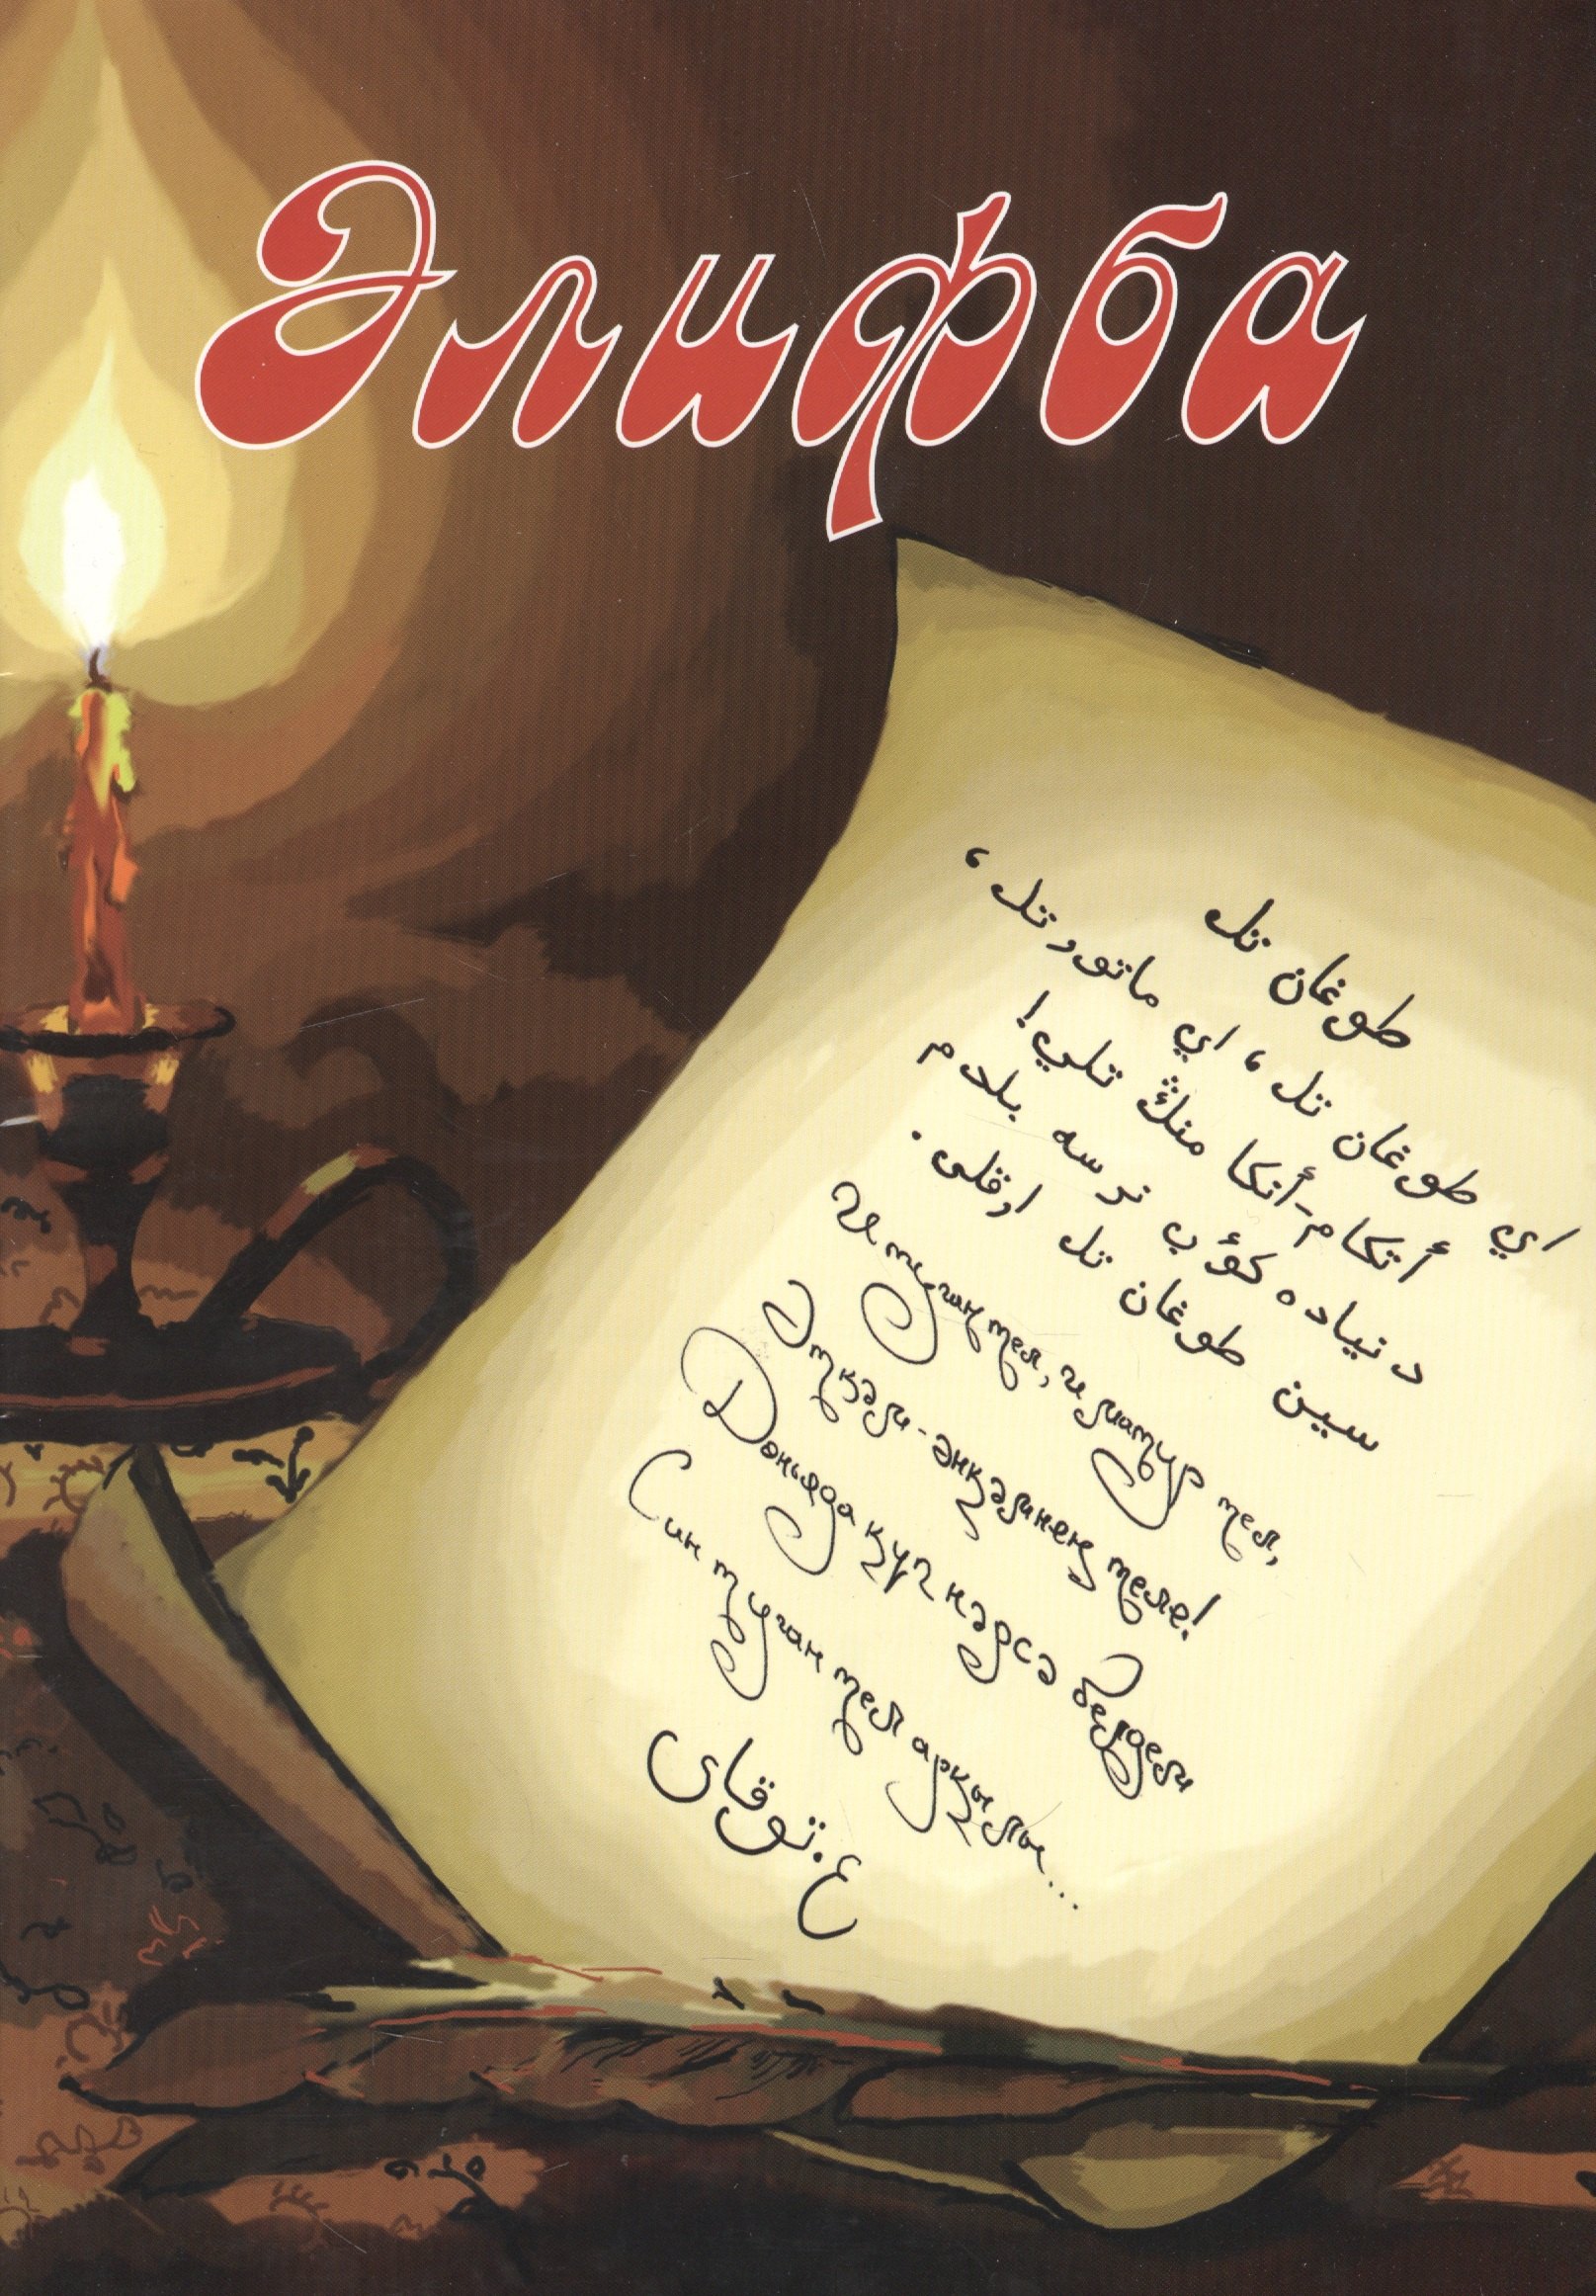 Әлифба
طوغان تل
اي طوغان تل، اي ماتور تل،
أتكام-أنكا منڭ تلي!
دنياده كؤب نرسه بلدم
سين طوغان تل اوقلى.
И туган тел, и матур тел,
Әткәм-әнкәмнең теле!
Дөньяда күп нәрсә белдем
Син туган тел аркылы...
ع. توقاى